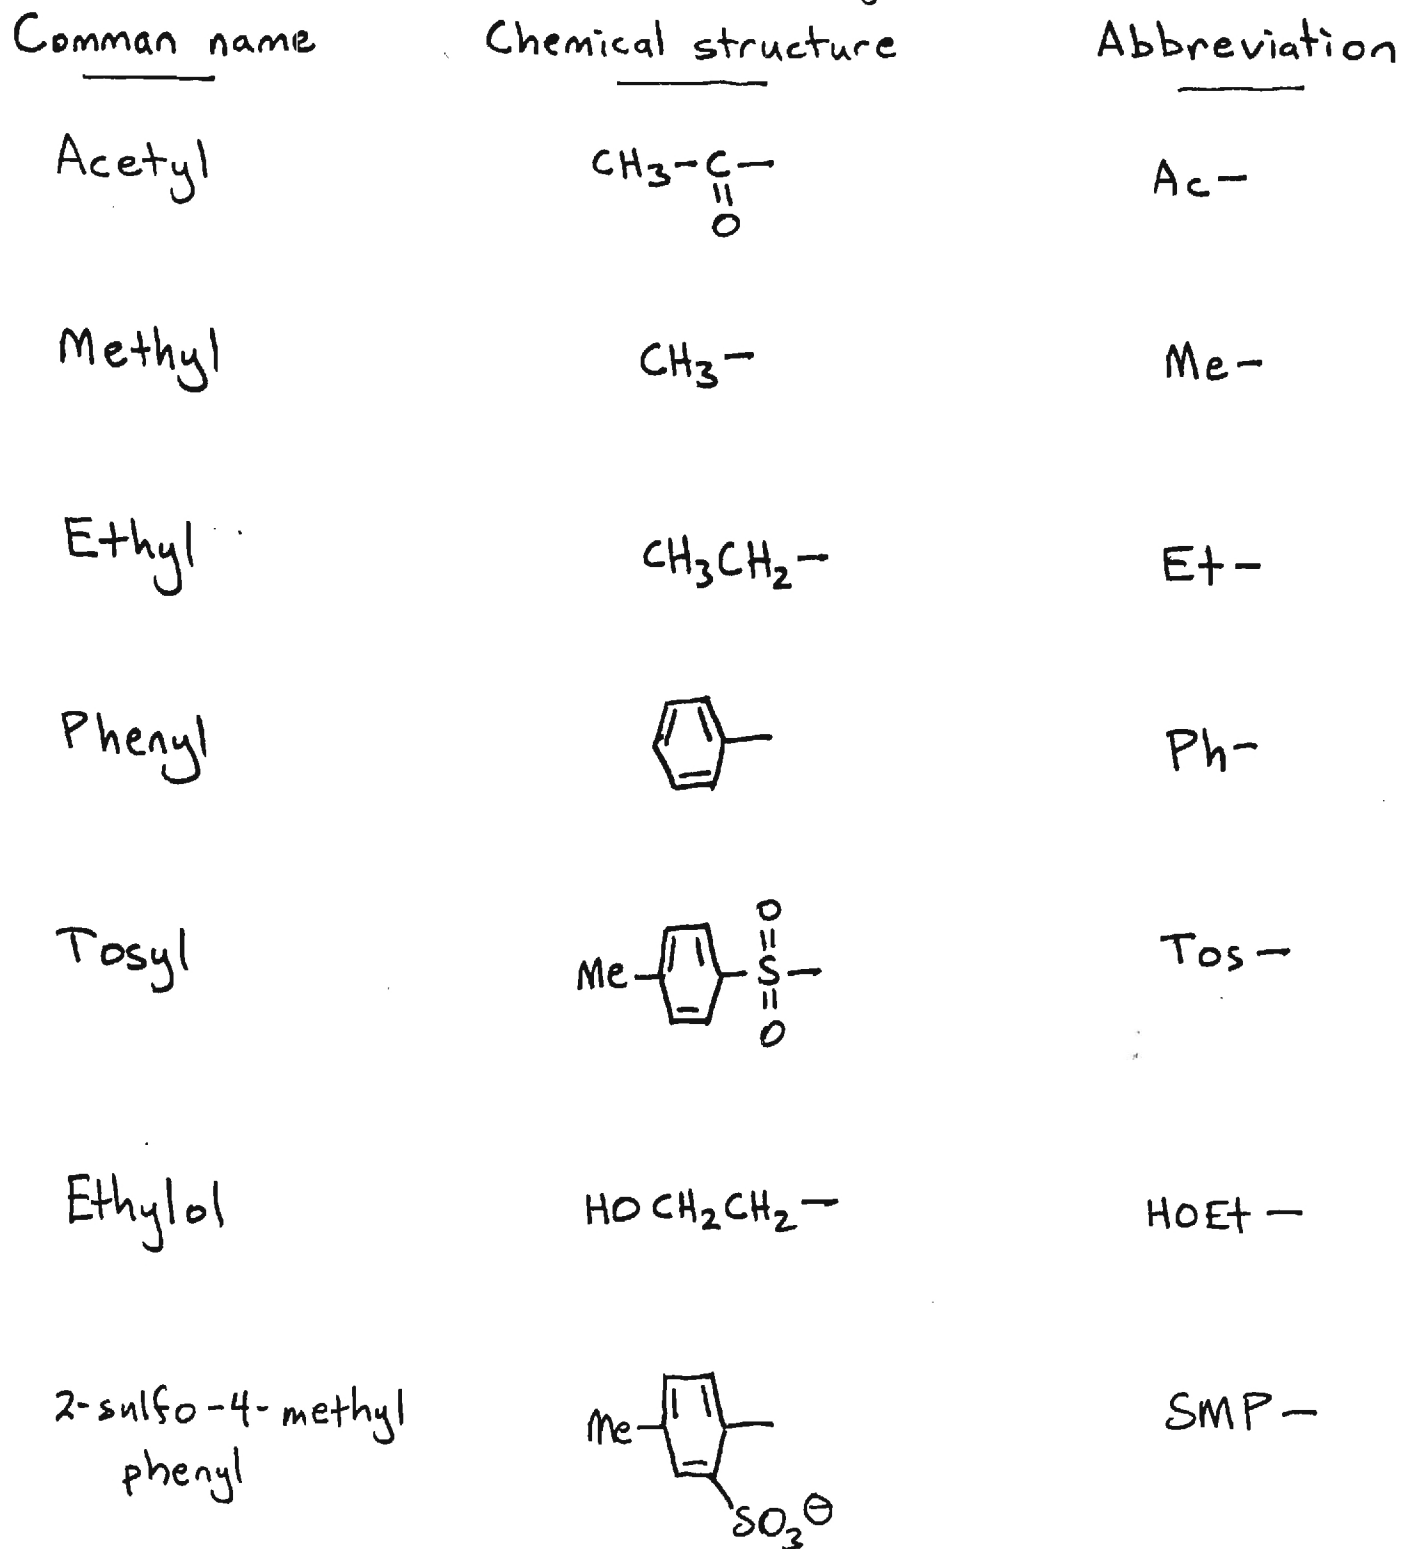 Comman name Chemical structure Abbreviation
Acetyl CH3-C- Ac-
O
Methyl CH3- Me-
Ethyl CH3CH2- Et-
Phenyl Ph-
O
Tosyl Me S- Tos-
O
Ethylol HOCH2CH2- HOEt-
2-sulfo-4-methyl Me SMP-
phenyl
SO3⊖